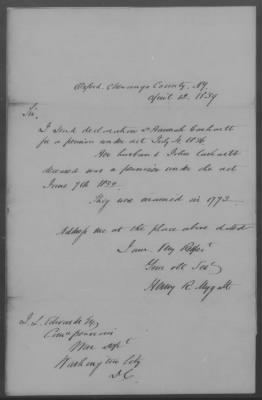 Oxford, Chenango County, NY.
April 12. 1839
Sir,
I send declaration of Hannah Carhartt
for a pension under act July 4. 1836
Her husband John Carhartt
deceased was a pensioner under the act
June 7th 1832.
They was married in 1773
Address me at the place above dated
I am Very Respt
Your obt Sert
Henry R. Mygatt
J. L. Edwards Esq
Comr pensions
War Dept
Washington City
D.C.